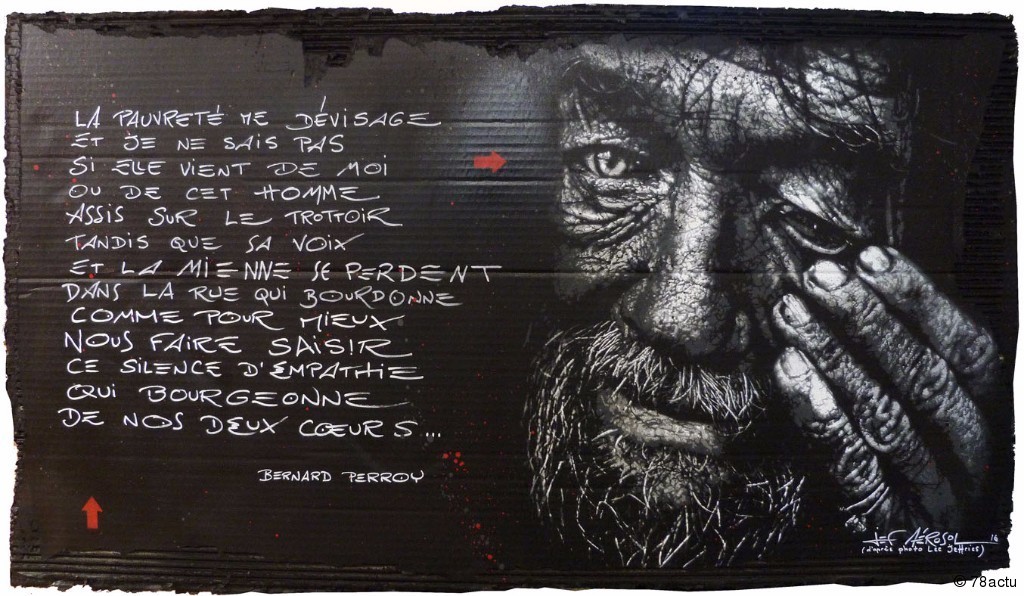 LA PAUVRETÉ ME DÉVISAGE
ET JE NE SAIS PAS
SI ELLE VIENT DE MOI
OU DE CET HOMME
ASSIS SUR LE TROTTOIR
TANDIS QUE SA VOIX
ET LA MIENNE SE PERDENT
DANS LA RUE QUI BOURDONNE
COMME POUR MIEUX
NOUS FAIRE SAISIR
CE SILENCE D'EMPATHIE
QUI BOURGEONNE
DE NOS DEUX CŒURS...
BERNARD PERROY
JEF AÉROSOL 16
(d'après photo Lee Jeffries)
© 78actu